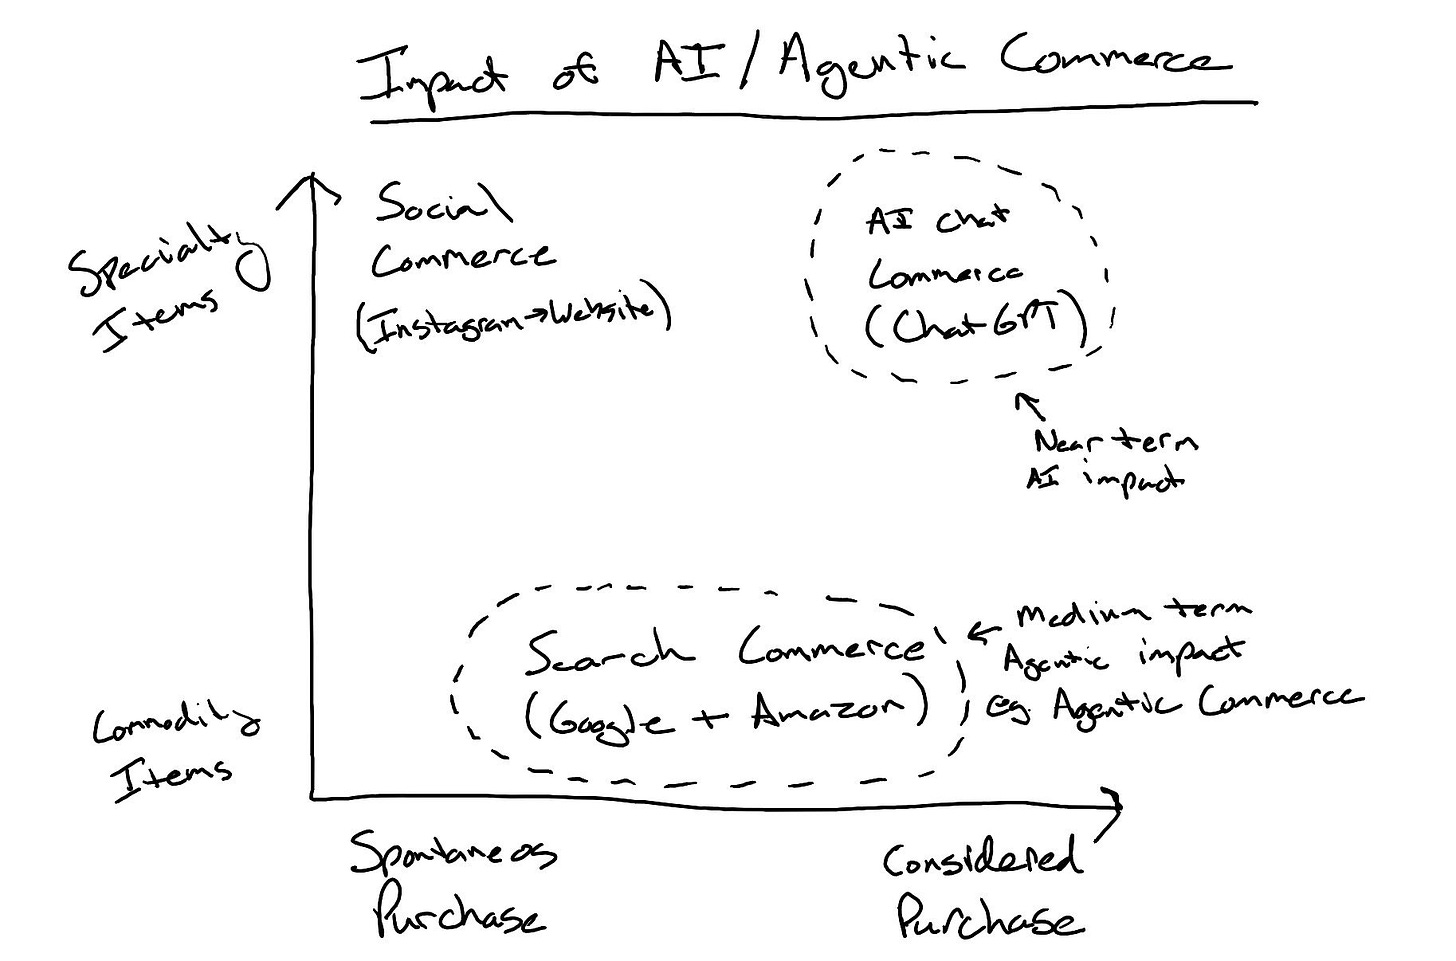 Impact of AI/Agentic Commerce
Specialty
Items
Social
Commerce
(Instagram→Website)
AI chat
Commerce
(ChatGPT)
Near term
AI impact
Search Commerce
(Google + Amazon)
Medium term
Agentic impact
eg. Agentic Commerce
Commodity
Items
Spontaneos
Purchase
Considered
Purchase